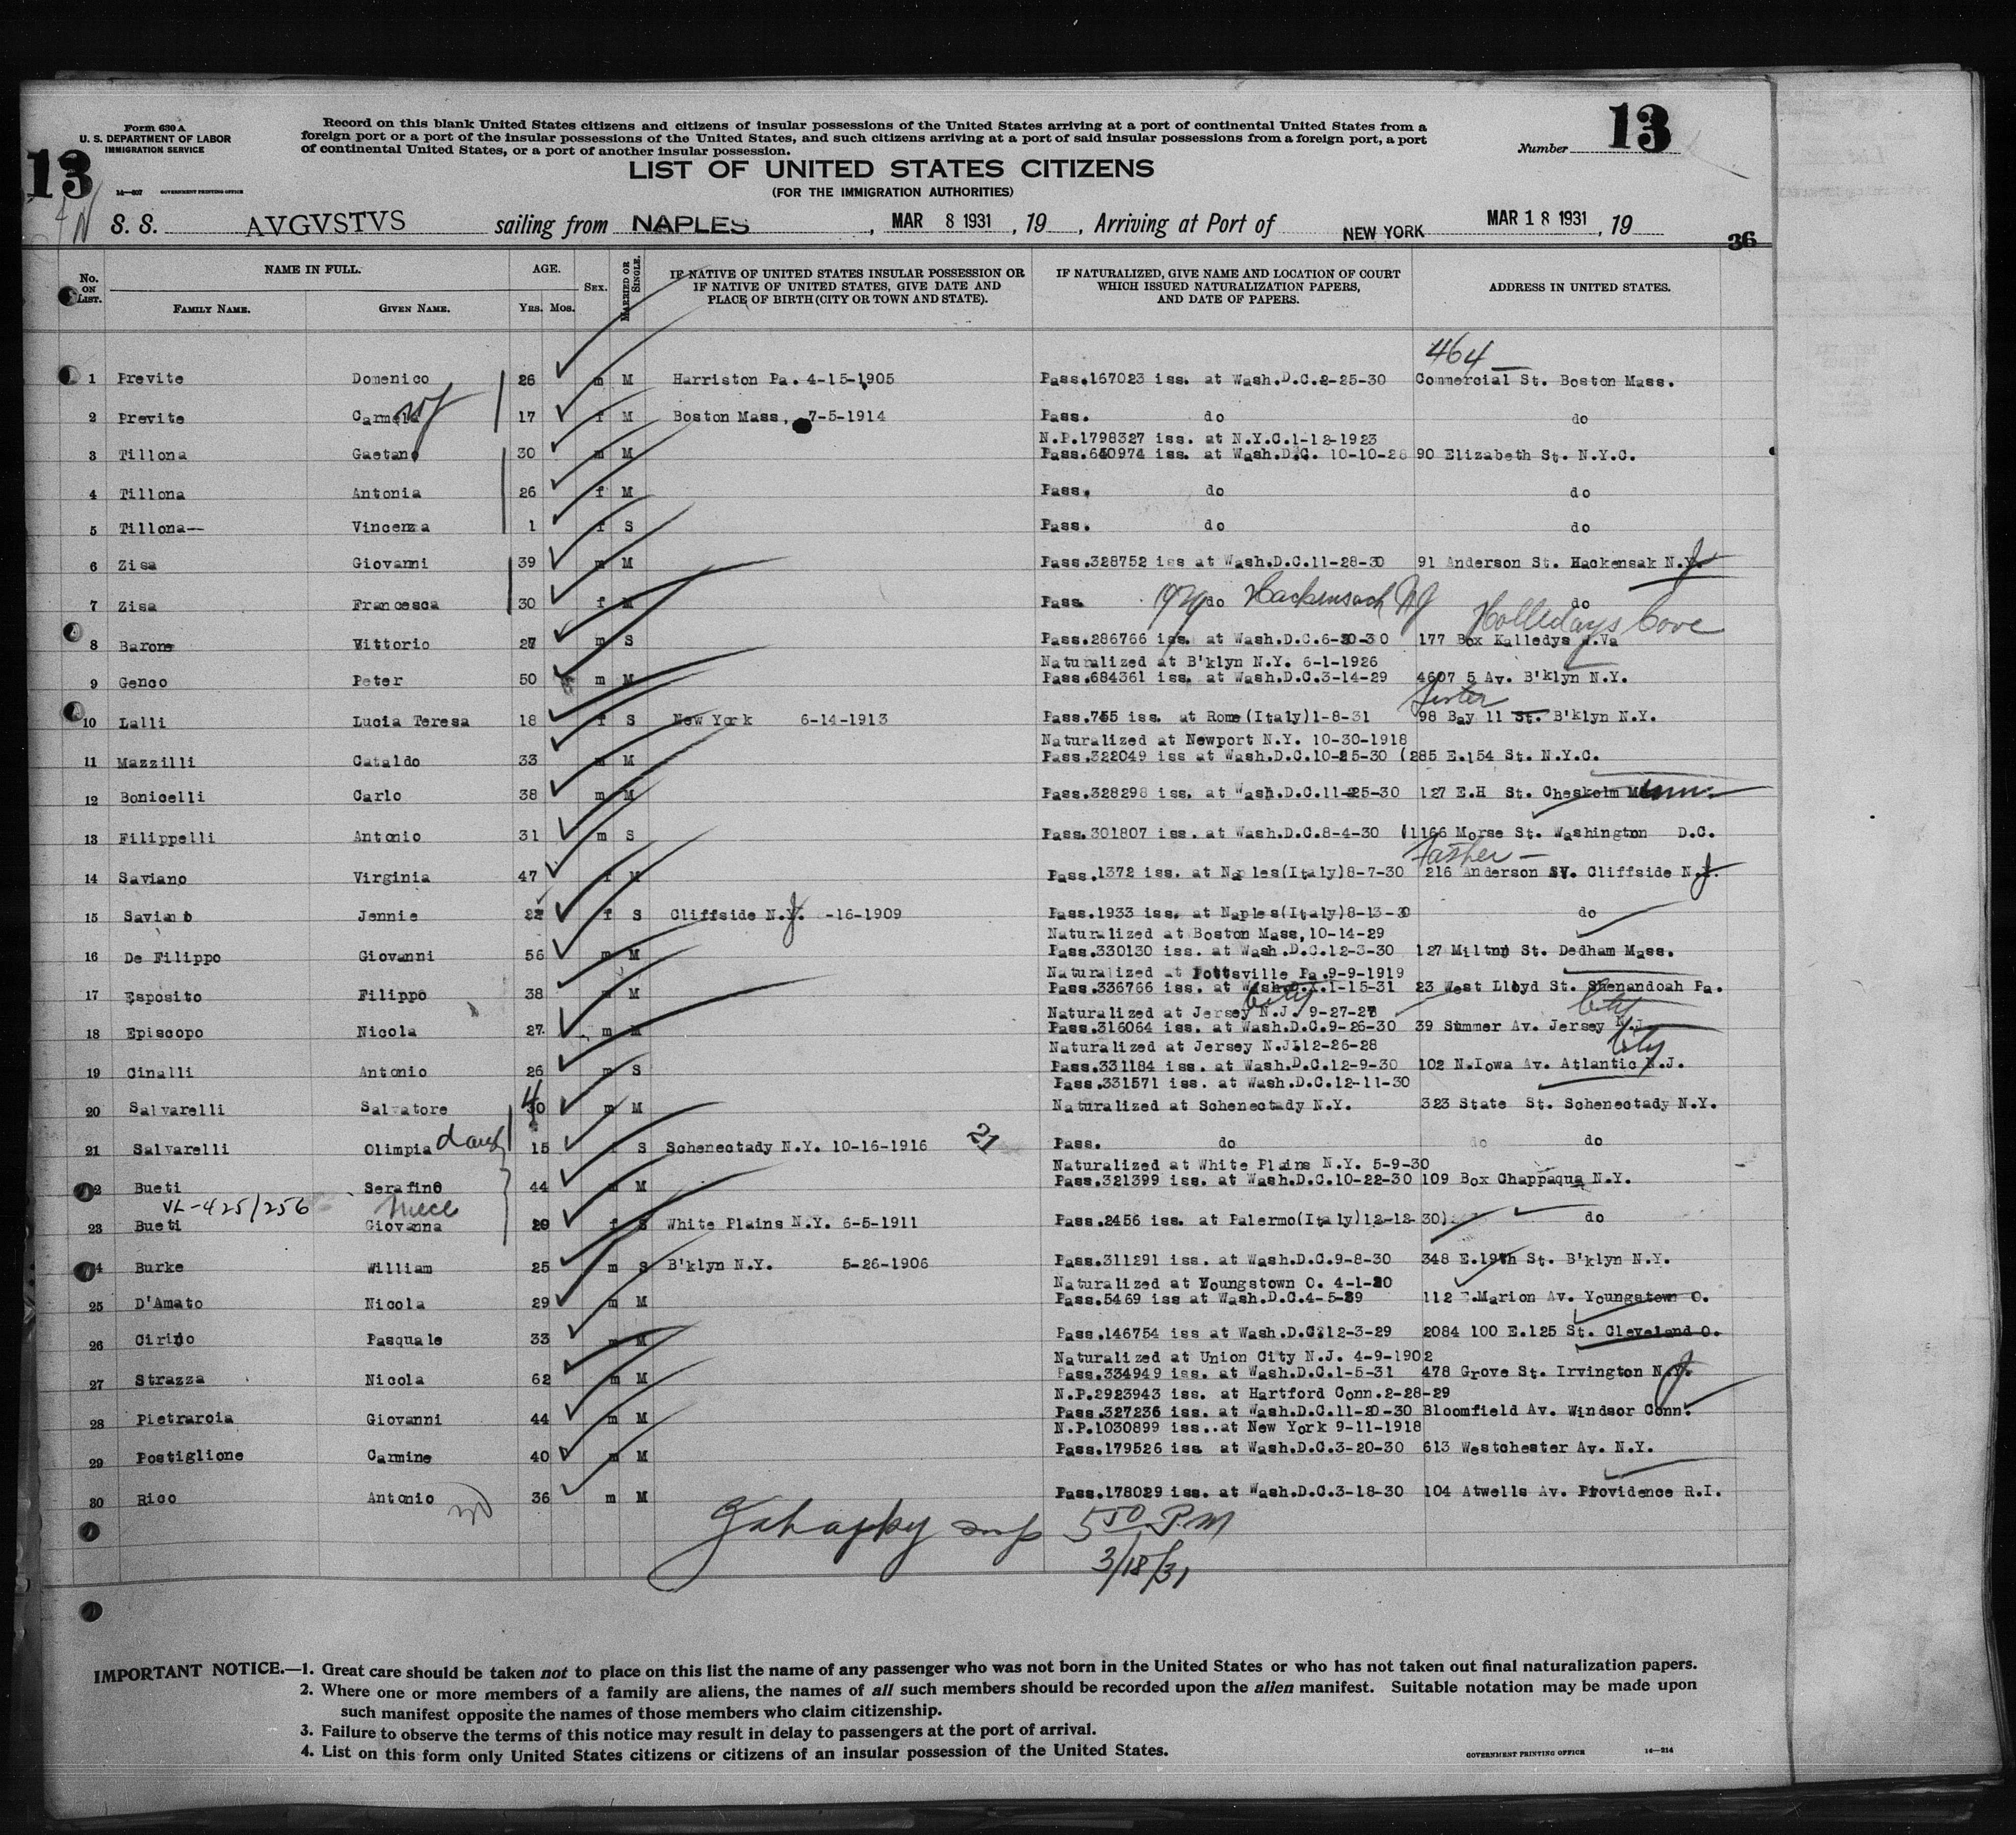 Form 630 A
U. S. DEPARTMENT OF LABOR
IMMIGRATION SERVICE
13
14—307 GOVERNMENT PRINTING OFFICE
Record on this blank United States citizens and citizens of insular possessions of the United States arriving at a port of continental United States from a
foreign port or a port of the insular possessions of the United States, and such citizens arriving at a port of said insular possessions from a foreign port, a port
of continental United States, or a port of another insular possession.
Number 13
LIST OF UNITED STATES CITIZENS
(FOR THE IMMIGRATION AUTHORITIES)
S. S. AVGVSTVS sailing from NAPLES, MAR 8 1931, 19 , Arriving at Port of NEW YORK MAR 18 1931, 19
36
No. ON LIST. NAME IN FULL. FAMILY NAME. GIVEN NAME. AGE. YRS. MOS. SEX. MARRIED OR SINGLE. IF NATIVE OF UNITED STATES INSULAR POSSESSION OR IF NATIVE OF UNITED STATES, GIVE DATE AND PLACE OF BIRTH (CITY OR TOWN AND STATE). IF NATURALIZED, GIVE NAME AND LOCATION OF COURT WHICH ISSUED NATURALIZATION PAPERS, AND DATE OF PAPERS. ADDRESS IN UNITED STATES.
464
1 Previte Domenico 26 m M Harriston Pa. 4-15-1905 Pass.167023 iss. at Wash.D.C.2-25-30 Commercial St. Boston Mass.
2 Previte Carmela wf 17 f M Boston Mass, 7-5-1914 Pass. do do
N.P.1798327 iss. at N.Y.C.1-12-1923
3 Tillona Gaetano 30 m M Pass.640974 iss. at Wash.D.C. 10-10-28 90 Elizabeth St. N.Y.C.
4 Tillona Antonia 26 f M Pass. do do
5 Tillona-- Vincenza 1 f S Pass. do do
6 Zisa Giovanni 39 m M Pass.328752 iss at Wash.D.C.11-28-30 91 Anderson St. Hackensak N.J.
7 Zisa Francesca 30 f M Pass. do Hackensack NJ do
Holledays Cove
8 Barone Vittorio 27 m S Pass.286766 iss. at Wash.D.C.6-30-30 177 Box Kalledys W.Va
Naturalized at B'klyn N.Y. 6-1-1926
9 Genco Peter 50 m M Pass.684361 iss. at Wash.D.C.3-14-29 4607 5 Av. B'klyn N.Y.
sister
10 Lalli Lucia Teresa 18 f S New York 6-14-1913 Pass.755 iss. at Rome(Italy)1-8-31 98 Bay 11 St. B'klyn N.Y.
Naturalized at Newport N.Y. 10-30-1918
11 Mazzilli Cataldo 33 m M Pass.322049 iss at Wash.D.C.10-25-30 (285 E.154 St. N.Y.C.
12 Bonicelli Carlo 38 m M Pass.328298 iss. at Wash.D.C.11-25-30 127 E.H St. Cheskolm Minn.
13 Filippelli Antonio 31 m S Pass.301807 iss. at Wash.D.C.8-4-30 1166 Morse St. Washington D.C.
father —
14 Saviano Virginia 47 f M Pass.1372 iss. at Naples(Italy)8-7-30 216 Anderson Sv. Cliffside N.J.
15 Saviano Jennie 22 f S Cliffside N.J. -16-1909 Pass.1933 iss. at Naples(Italy)8-13-30 do
Naturalized at Boston Mass,10-14-29
16 De Filippo Giovanni 56 m M Pass.330130 iss. at Wash.D.C.12-3-30 127 Milton St. Dedham Mass.
Naturalized at Pottsville Pa.9-9-1919
17 Esposito Filippo 38 m M Pass.336766 iss. at Wash.D.C.1-15-31 23 West Lloyd St. Shenandoah Pa.
city city
Naturalized at Jersey N.J. 9-27-27
18 Episcopo Nicola 27 m M Pass.316064 iss. at Wash.D.C.9-26-30 39 Summer Av. Jersey N.J.
Naturalized at Jersey N.J.12-26-28 city
19 Cinalli Antonio 26 m S Pass.331184 iss. at Wash.D.C.12-9-30 102 N.Iowa Av. Atlantic N.J.
Pass.331571 iss. at Wash.D.C.12-11-30
20 Salvarelli Salvatore 40 m M Naturalized at Schenectady N.Y. 323 State St. Schenectady N.Y.
21 Salvarelli Olimpia daug 15 f S Schenectady N.Y. 10-16-1916 21 Pass. do do do
Naturalized at White Plains N.Y. 5-9-30
22 Bueti Serafino 44 m M Pass.321399 iss. at Wash.D.C.10-22-30 109 Box Chappaqua N.Y.
VL-425/256 niece
23 Bueti Giovanna 20 f S White Plains N.Y. 6-5-1911 Pass.2456 iss. at Palermo(Italy)12-12-30) do
24 Burke William 25 m S B'klyn N.Y. 5-26-1906 Pass.311291 iss. at Wash.D.C.9-8-30 348 E.19th St. B'klyn N.Y.
Naturalized at Youngstown O. 4-1-20
25 D'Amato Nicola 29 m M Pass.5469 iss at Wash.D.C.4-5-29 112 E.Marion Av. Youngstown O.
26 Cirino Pasquale 33 m M Pass.146754 iss at Wash.D.C.12-3-29 2084 100 E.125 St. Cleveland O.
Naturalized at Union City N.J. 4-9-1902
27 Strazza Nicola 62 m M Pass.334949 iss. at Wash.D.C.1-5-31 478 Grove St. Irvington N.J.
N.P.2923943 iss. at Hartford Conn.2-28-29
28 Pietraroia Giovanni 44 m M Pass.327236 iss. at Wash.D.C.11-20-30 Bloomfield Av. Windsor Conn.
N.P.1030899 iss..at New York 9-11-1918
29 Postiglione Carmine 40 m M Pass.179526 iss at Wash.D.C.3-20-30 613 Westchester Av. N.Y.
30 Rico Antonio 36 m M Pass.178029 iss. at Wash.D.C.3-18-30 104 Atwells Av. Providence R.I.
5 50 P.M
3/18/31
IMPORTANT NOTICE.—1. Great care should be taken not to place on this list the name of any passenger who was not born in the United States or who has not taken out final naturalization papers.
2. Where one or more members of a family are aliens, the names of all such members should be recorded upon the alien manifest. Suitable notation may be made upon
such manifest opposite the names of those members who claim citizenship.
3. Failure to observe the terms of this notice may result in delay to passengers at the port of arrival.
4. List on this form only United States citizens or citizens of an insular possession of the United States.
GOVERNMENT PRINTING OFFICE 14—214